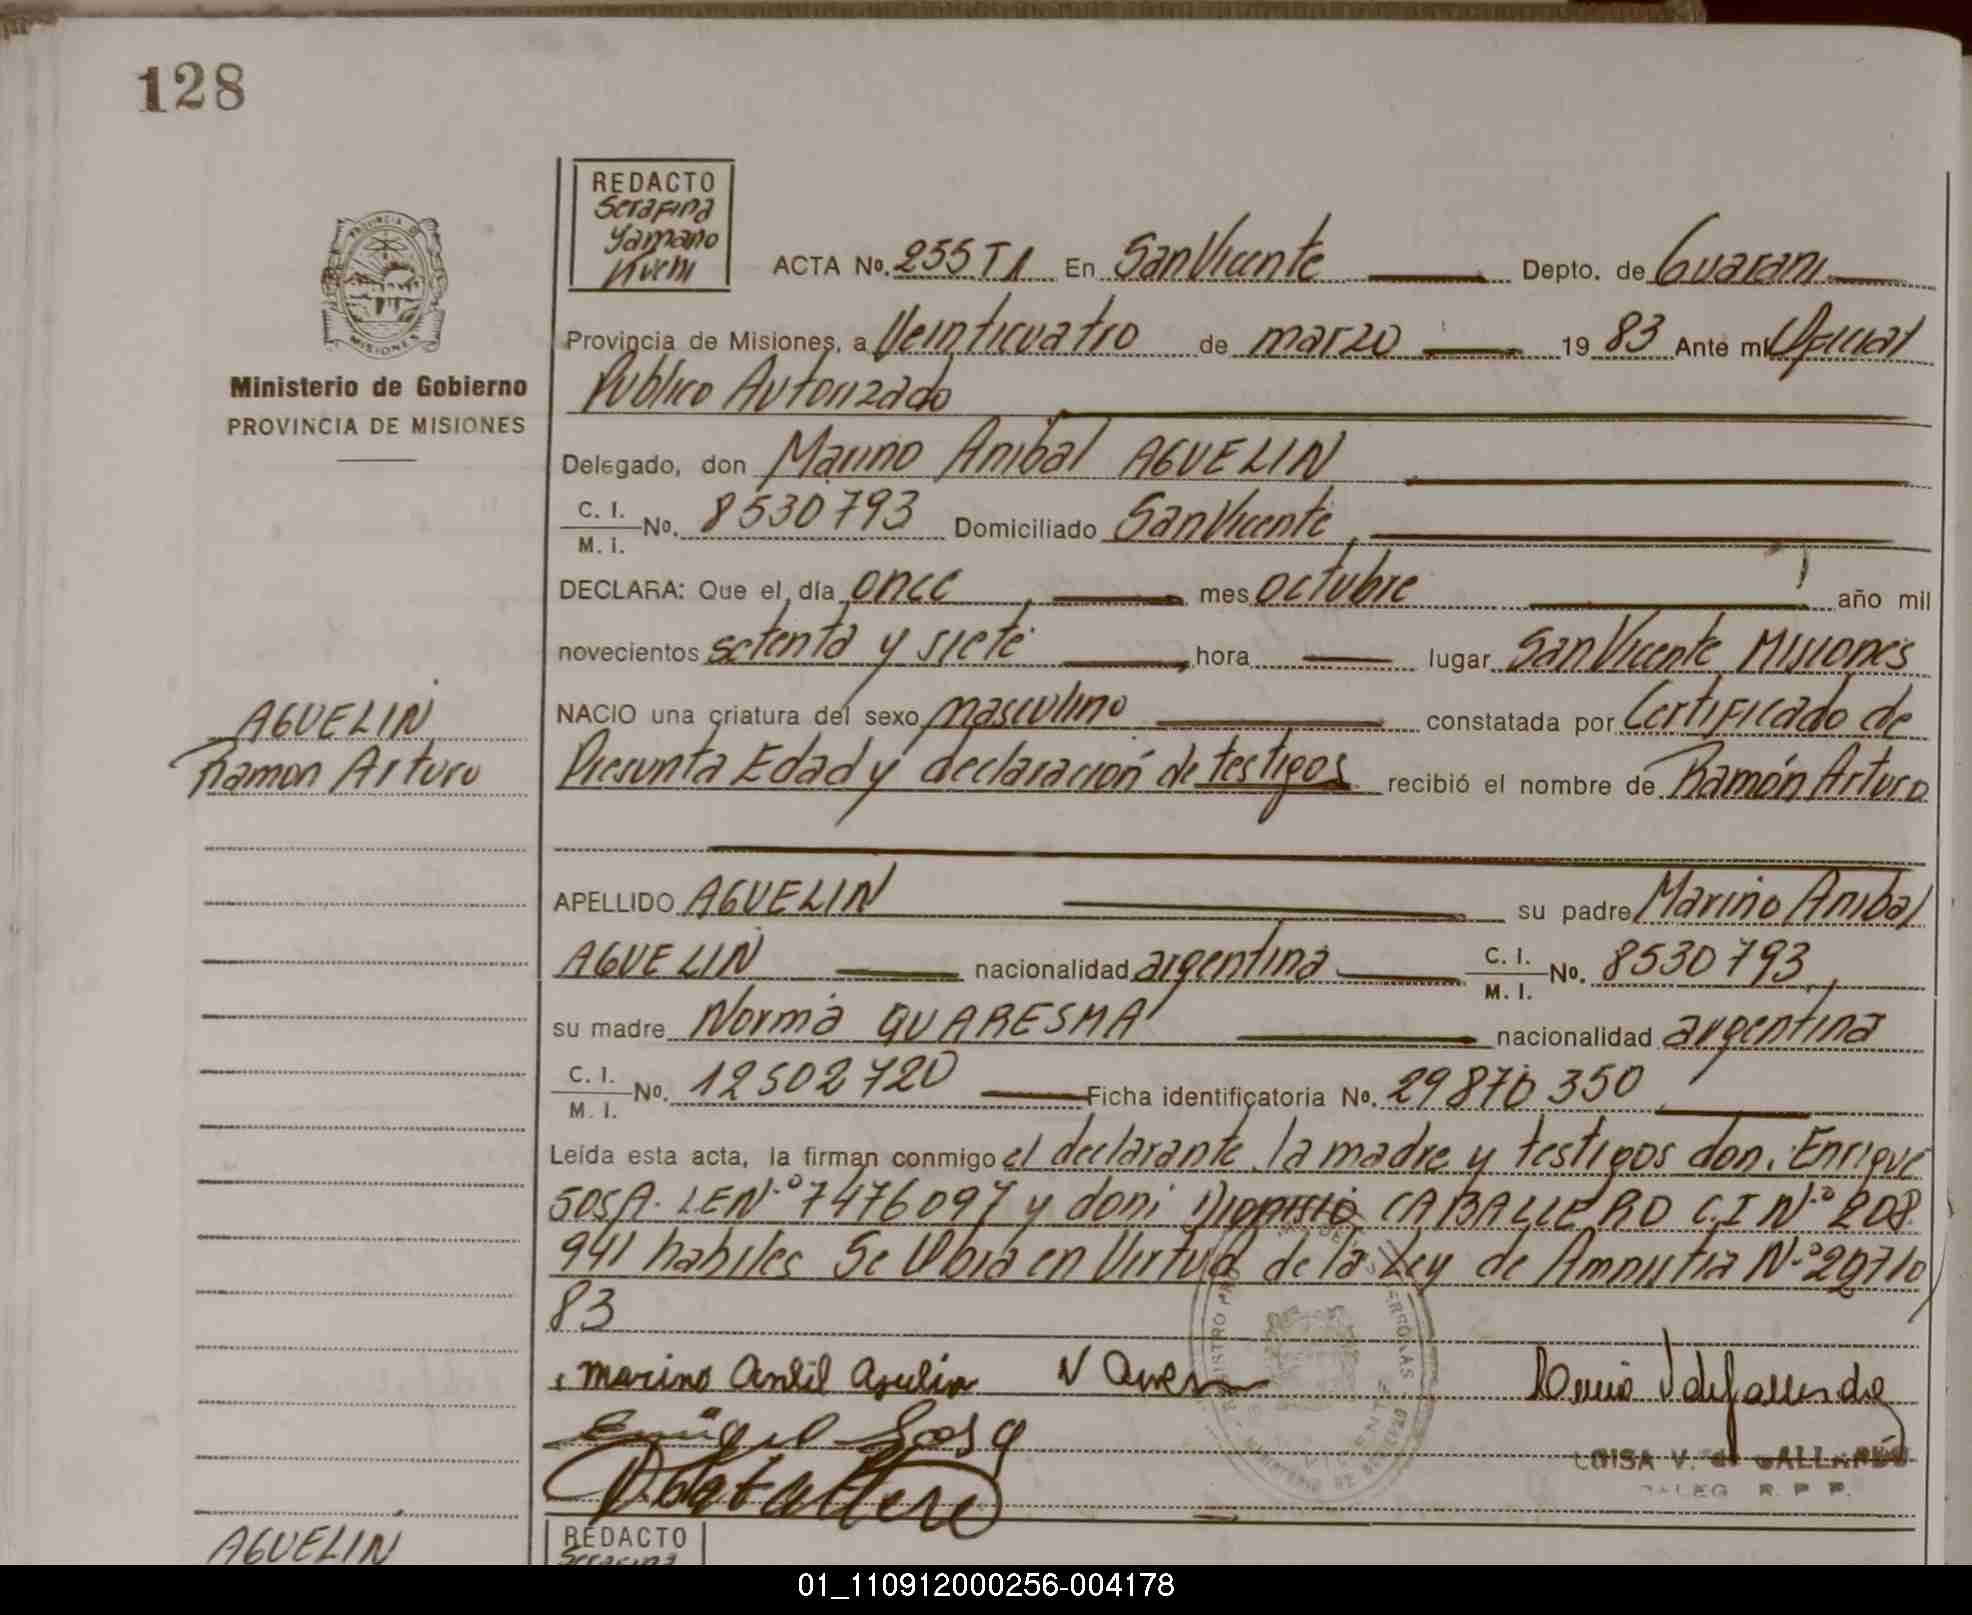 128
REDACTO
Serafina
Yamano
PROVINCIA DE
MISIONES
ACTA No. 255 T1 En San Vicente Depto. de Guarani
Provincia de Misiones, a Veinticuatro de marzo 1983 Ante mi Oficial
Publico Autorizado
Ministerio de Gobierno
PROVINCIA DE MISIONES
Delegado, don Marino Anibal AGUELIN
C. I.
M. I. No. 8530793 Domiciliado San Vicente
DECLARA: Que el día once mes octubre año mil
novecientos setenta y siete hora lugar San Vicente Misiones
NACIO una criatura del sexo masculino constatada por Certificado de
AGUELIN
Ramon Arturo
Presunta Edad y declaración de testigos recibió el nombre de Ramón Arturo
APELLIDO AGUELIN su padre Marino Anibal
AGUELIN nacionalidad argentina C. I.
M. I. No. 8530793
su madre Norma QUARESMA nacionalidad argentina
C. I.
M. I. No. 12502720 Ficha identificatoria No. 29870350
Leída esta acta, la firman conmigo el declarante, la madre y testigos don. Enrique
SOSA. LEN.º 7476097 y don: Dionisio CABALLERO C.I N.º 208.
941 habiles Se Ubia en Virtud de la Ley de Amnistia N.º 20710
83
Marino
Enrique Sosa
LUISA V. de GALLARDO
DELEG. R. P. P.
AGUELIN
REDACTO
Serafina
01_110912000256-004178